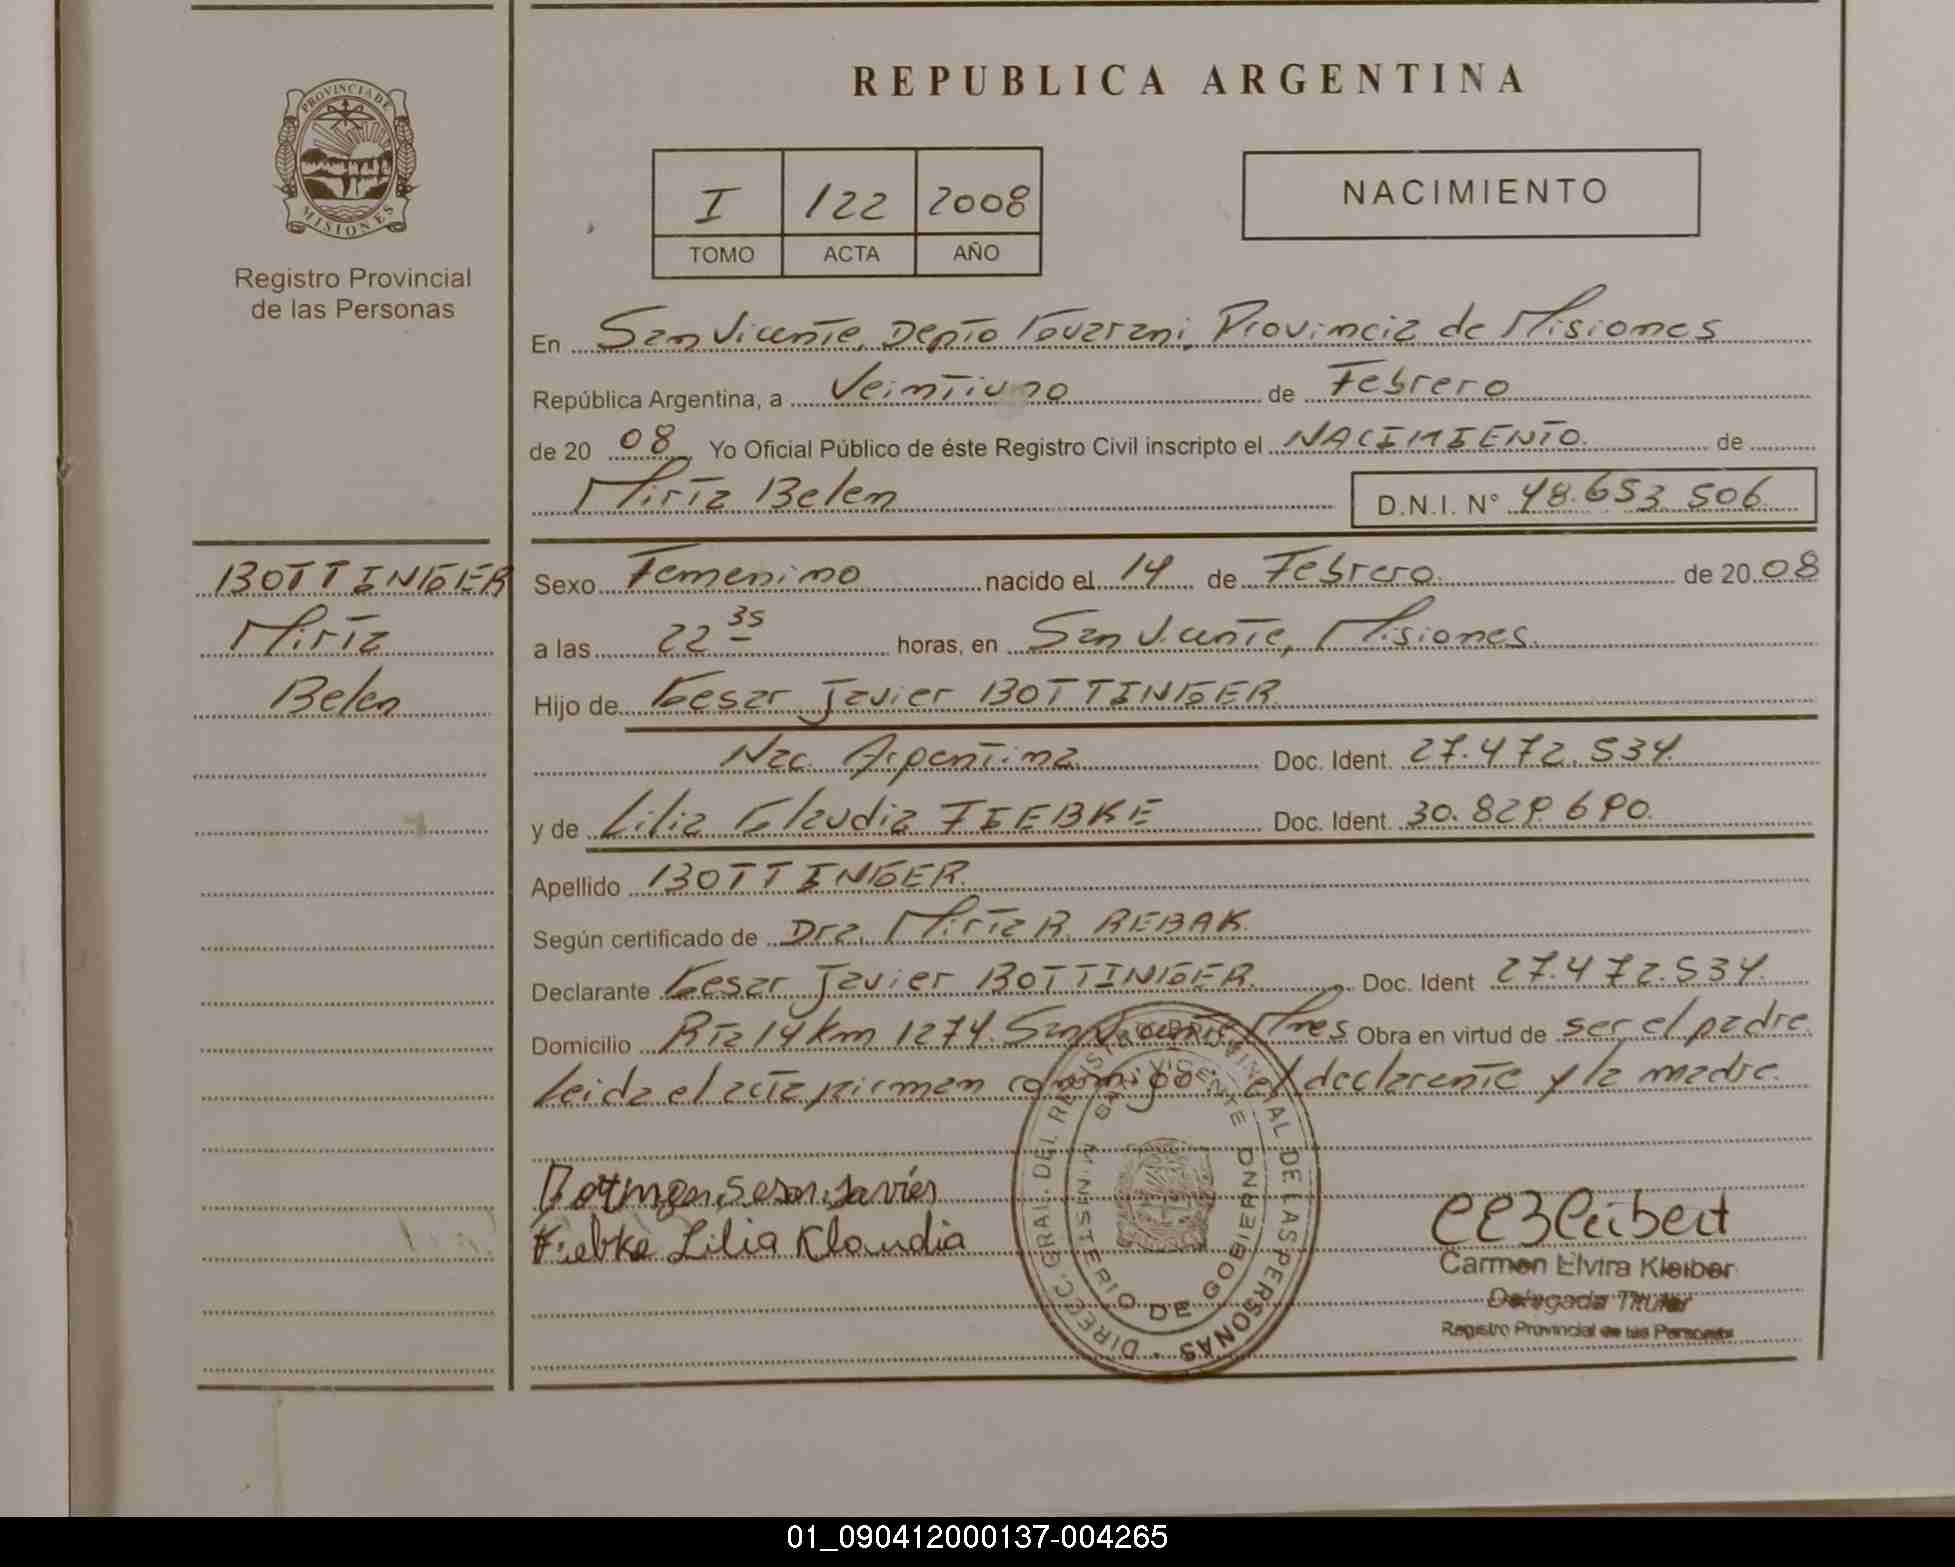 REPUBLICA ARGENTINA
PROVINCIA DE
MISIONES
Registro Provincial
de las Personas
I 122 2008
TOMO ACTA AÑO
NACIMIENTO
En San Vicente, Depto Guarani, Provincia de Misiones
República Argentina, a Veintiuno de Febrero
de 2008 Yo Oficial Público de éste Registro Civil inscripto el NACIMIENTO. de
Mirta Belen D.N.I. N° 48.653.506
BOTTINGER
Mirta
Belen
Sexo Femenino nacido el 14 de Febrero de 2008
a las 22 35 horas, en San Vicente, Misiones.
Hijo de Cesar Javier BOTTINGER
Nac. Argentina Doc. Ident. 27.472.534.
y de Lilia Claudia FIEBKE Doc. Ident. 30.829.690.
Apellido BOTTINGER.
Según certificado de Dra. Mirta R. REBAK.
Declarante Cesar Javier BOTTINGER. Doc. Ident 27.472.534.
Domicilio Rta 14 km 1274. San Vicente Mnes Obra en virtud de ser el padre
leida el acta firman conmigo el declarante y la madre.
Sesar Javier
Fiebke Lilia Klaudia
DIREC. GRAL. DEL REGISTRO PROVINCIAL DE LAS PERSONAS
SAN VICENTE
MINISTERIO DE GOBIERNO
Carmen Elvira Kleiber
Delegada Titular
Registro Provincial de las Personas
01_090412000137-004265